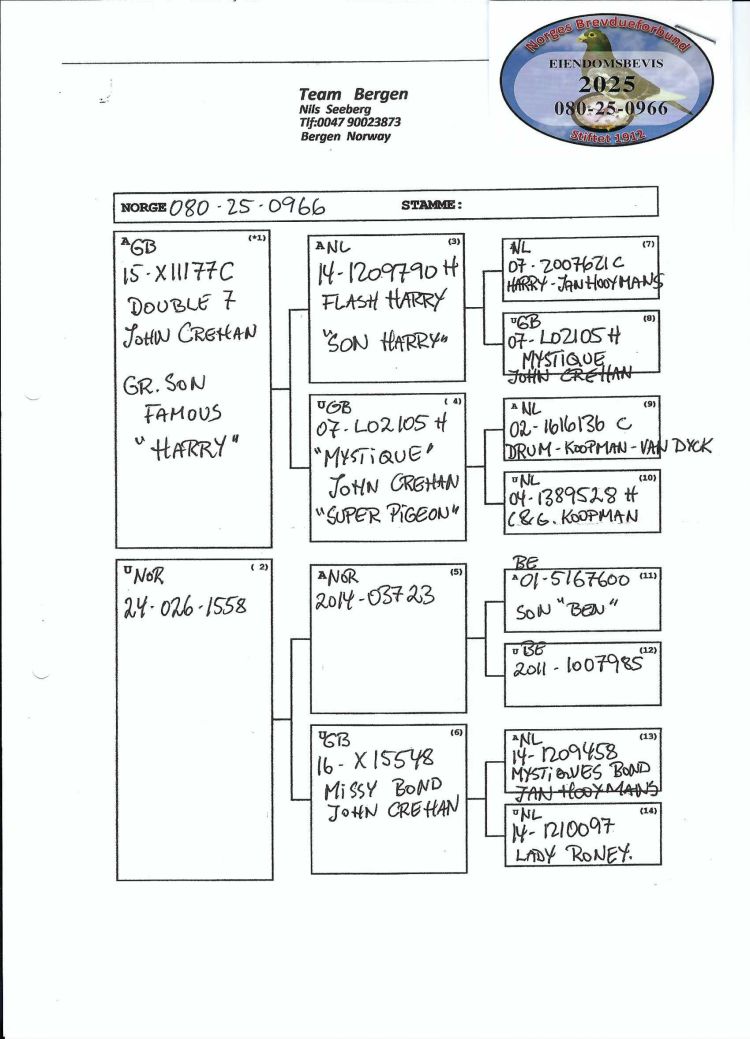 Norges Brevdueforbund
EIENDOMSBEVIS
2025
080-25-0966
Stiftet 1912
Team Bergen
Nils Seeberg
Tlf:0047 90023873
Bergen Norway
NORGE 080-25-0966 STAMME:
A GB (*1)
15-X11177C
DOUBLE 7
JOHN CREHAN
GR. SON
FAMOUS
"HARRY"
U NOR ( 2)
24-026-1558
A NL (3)
14-1209790 H
FLASH HARRY
"SON HARRY"
U GB ( 4)
07-L02105 H
"MYSTiQUE"
JOHN CREHAN
"SUPER PiGEON"
A NOR (5)
2014-03723
U GB (6)
16-X15548
MiSSY BOND
JOHN CREHAN
A NL (7)
07-2007621 C
HARRY-JAN HOOYMANS
U GB (8)
07-L02105 H
MYSTIQUE
JOHN CREHAN
A NL (9)
02-1616136 C
DRUM-KOOPMAN-VAN DYCK
U NL (10)
04-1389528 H
C&G. KOOPMAN
BE
A 01-5167600 (11)
SON "BEN"
U BE (12)
2011-1007985
A NL (13)
14-1209458
MYSTIQUES BOND
JAN HOOYMANS
U NL (14)
14-1210097
LADY RONEY.